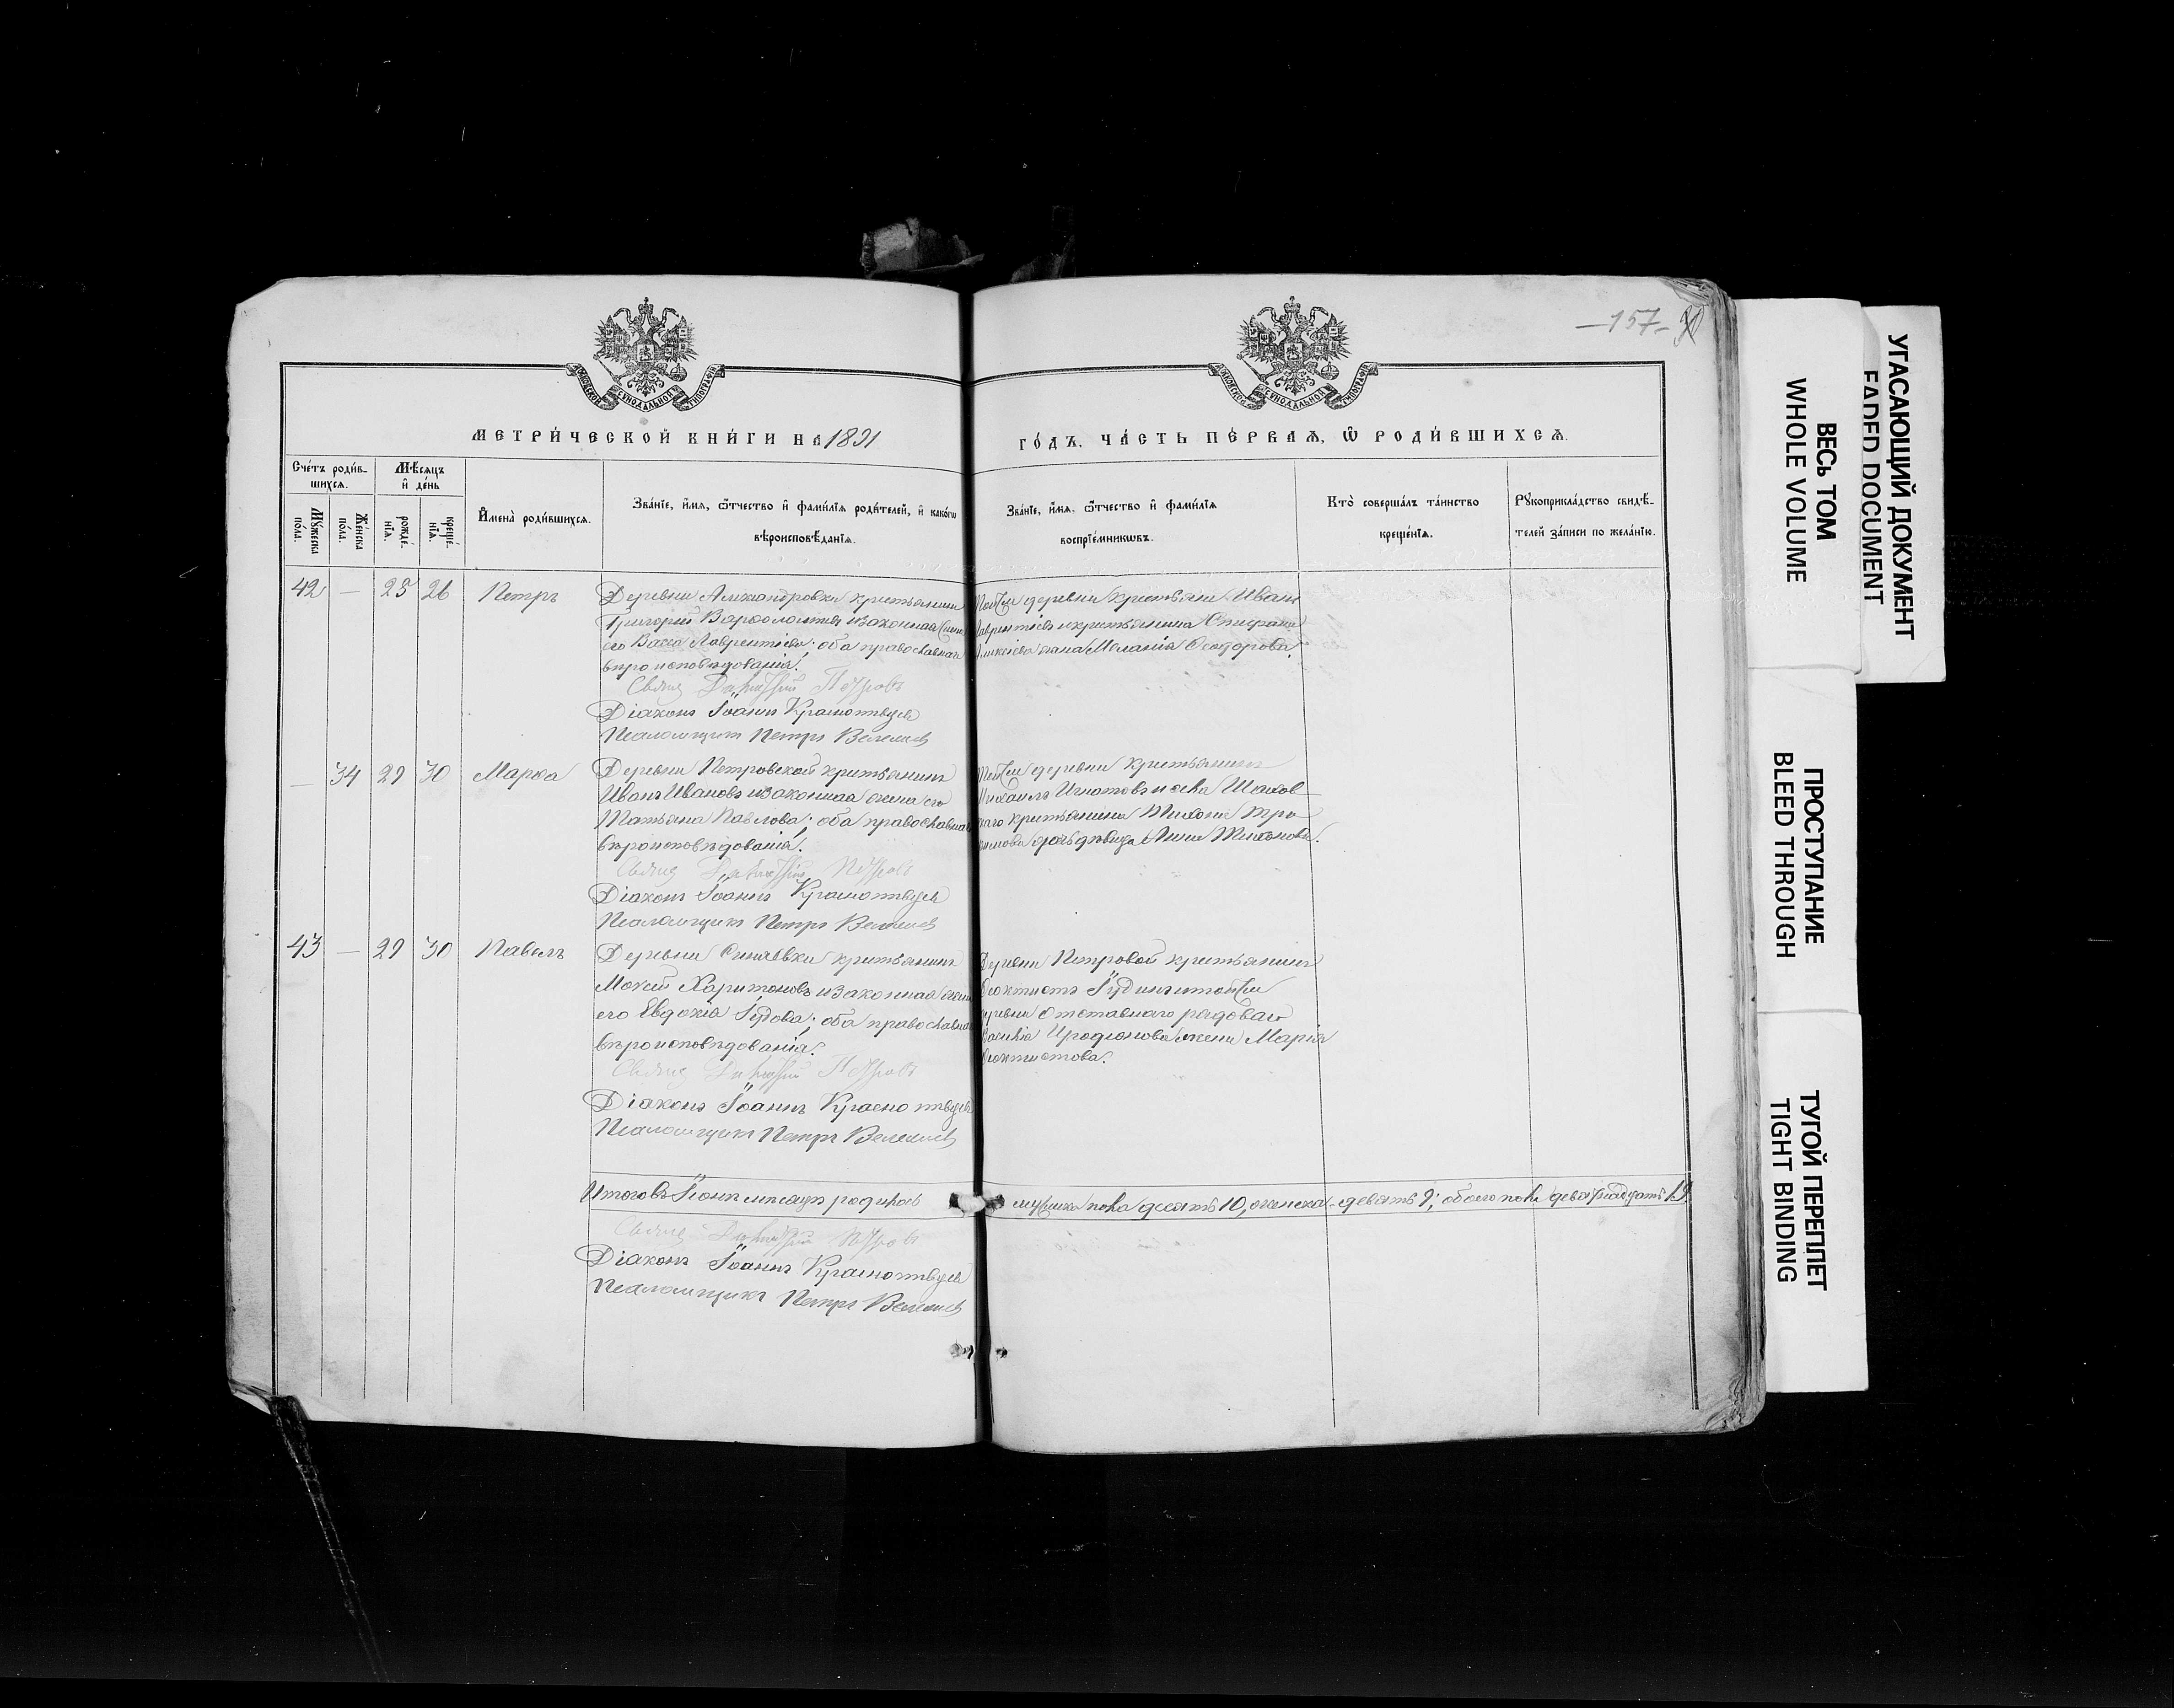 —157—
МЕТРИ́ЧЕСКОЙ КНИ́ГИ НА 1891
ГО́ДЪ, ЧА́СТЬ ПЕ́РВАЯ, Ѡ РОДИ́ВШИХСЯ.
Сче́тъ роди́в-
шихся.
Мѣ́сяцъ
и де́нь
Му́жеска
по́ла.
Же́нска
по́ла.
рожде́-
нїя.
креще́-
нїя.
Имена̀ роди́вшихся.
Зва́нїе, и́мя, ѻ҆́тчество и фами́лїя роди́телей, и како́гѡ
вѣроисповѣ́данїя.
Зва́нїе, и́мя, ѻ҆́тчество и фами́лїя
воспрїе́мникѡвъ.
Кто̀ соверша́лъ та́инство
креще́нїя.
Рꙋкоприкла́дство свидѣ́-
телей за́писи по жела́нїю.
42 — 25 26 Петръ
Деревни Александровки крестьянинъ
Григорій Варфоломеевъ и законная жена
его Васса Лаврентіева; оба православнаго
вѣроисповѣданія.
Священ Петровъ
Діаконъ Іоаннъ Красноцвѣтовъ
Псаломщикъ Петръ
Той же деревни крестьяне Иванъ
Лаврентіевъ и крестьянина Стефана
жена Меланія Ѳеодорова.
— 34 29 30 Марѳа
Деревни Петровской крестьянинъ
Иванъ Ивановъ и законная жена его
Татьяна Павлова; оба православнаго
вѣроисповѣданія.
Священ Петровъ
Діаконъ Іоаннъ Красноцвѣтовъ
Псаломщикъ Петръ
Той же деревни крестьянинъ
Михаилъ Игнатовъ и села
крестьянина Тихона
дочь дѣвица Анна Тихонова.
43 — 29 30 Павелъ
Деревни крестьянинъ
Мокей Харитоновъ и законная жена
его Евдокія Іудова; оба православнаго
вѣроисповѣданія.
Священ Петровъ
Діаконъ Іоаннъ Красноцвѣтовъ
Псаломщикъ Петръ
Деревни Петровой крестьянинъ
Ѳеоктистъ Іудинъ и той же
деревни отставнаго рядоваго
Василія Иродіонова жена Марія
Ѳеоктистова.
Итого въ Іюнѣ мѣсяцѣ родилось мужеска пола десять 10, женска - девять 9; обоего пола девятнадцать 19.
Священ Петровъ
Діаконъ Іоаннъ Красноцвѣтовъ
Псаломщикъ Петръ
УГАСАЮЩИЙ ДОКУМЕНТ
FADED DOCUMENT
ВЕСЬ ТОМ
WHOLE VOLUME
ПРОСТУПАНИЕ
BLEED THROUGH
ТУГОЙ ПЕРЕПЛЕТ
TIGHT BINDING